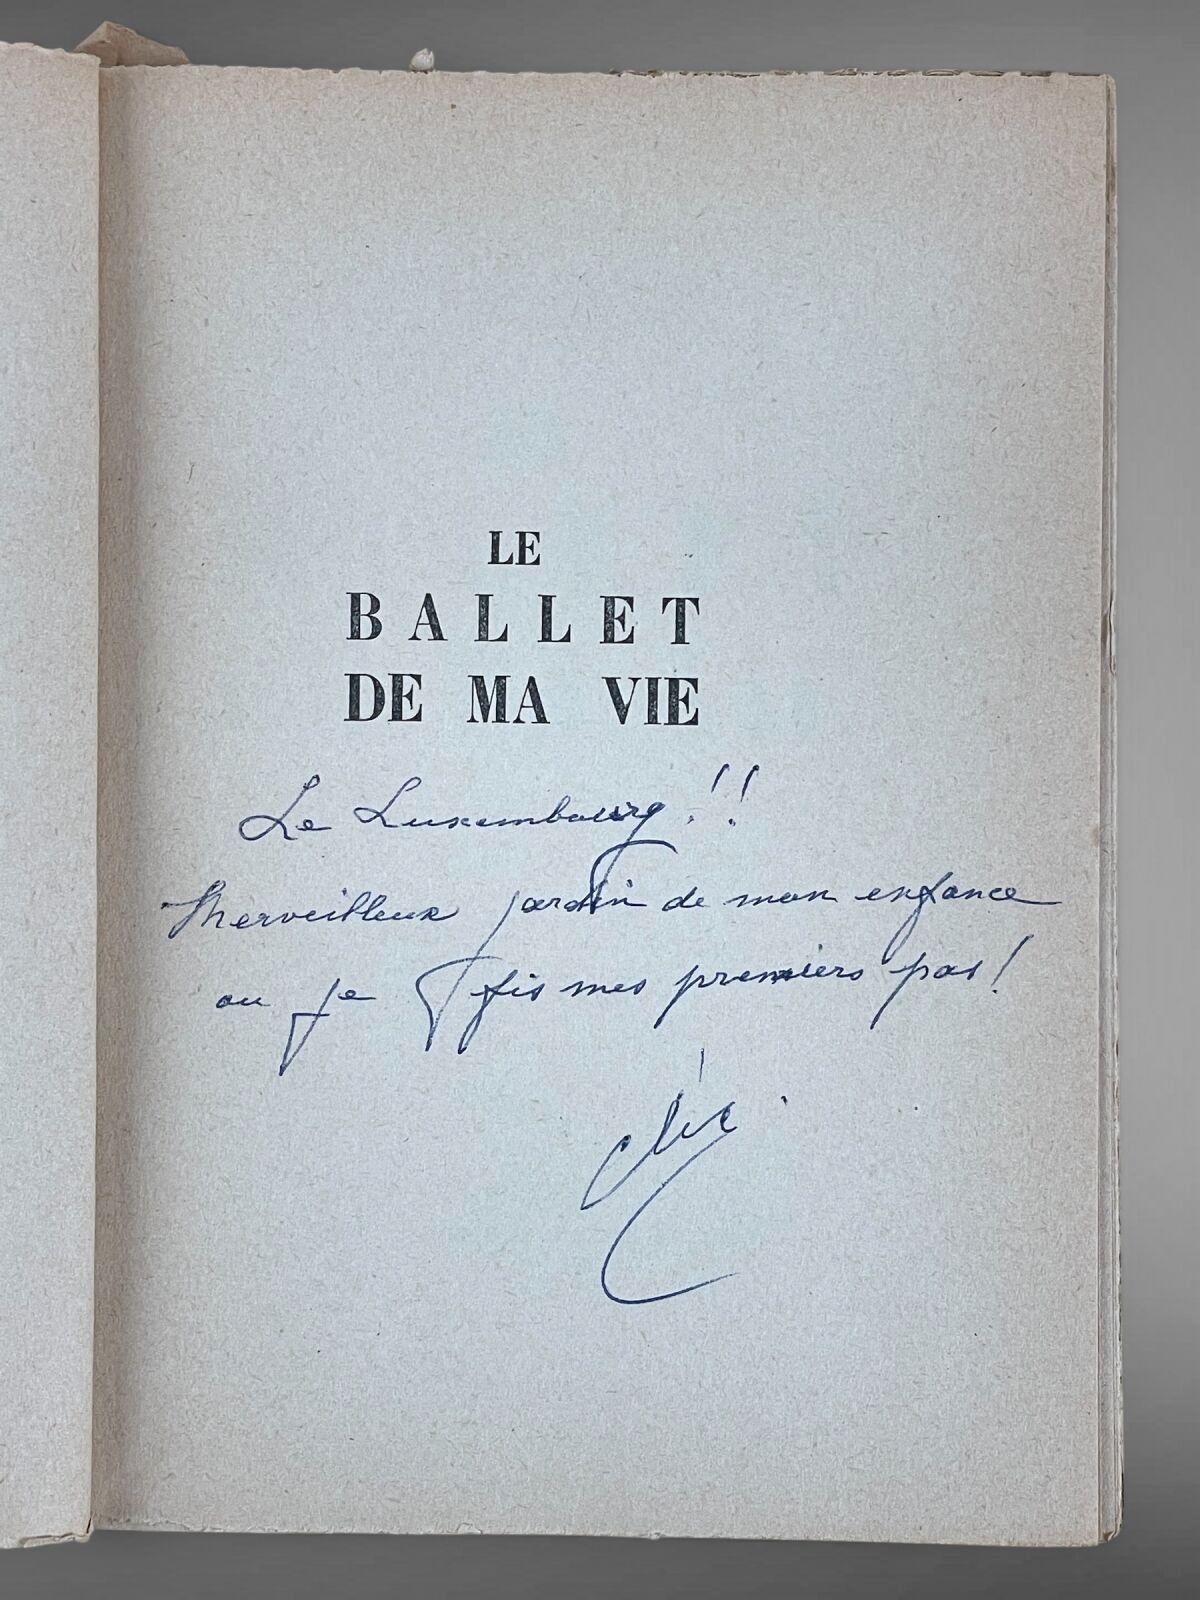 LE
BALLET
DE MA VIE
Le Luxembourg !!
Merveilleux jardin de mon enfance
ou je fis mes premiers pas !